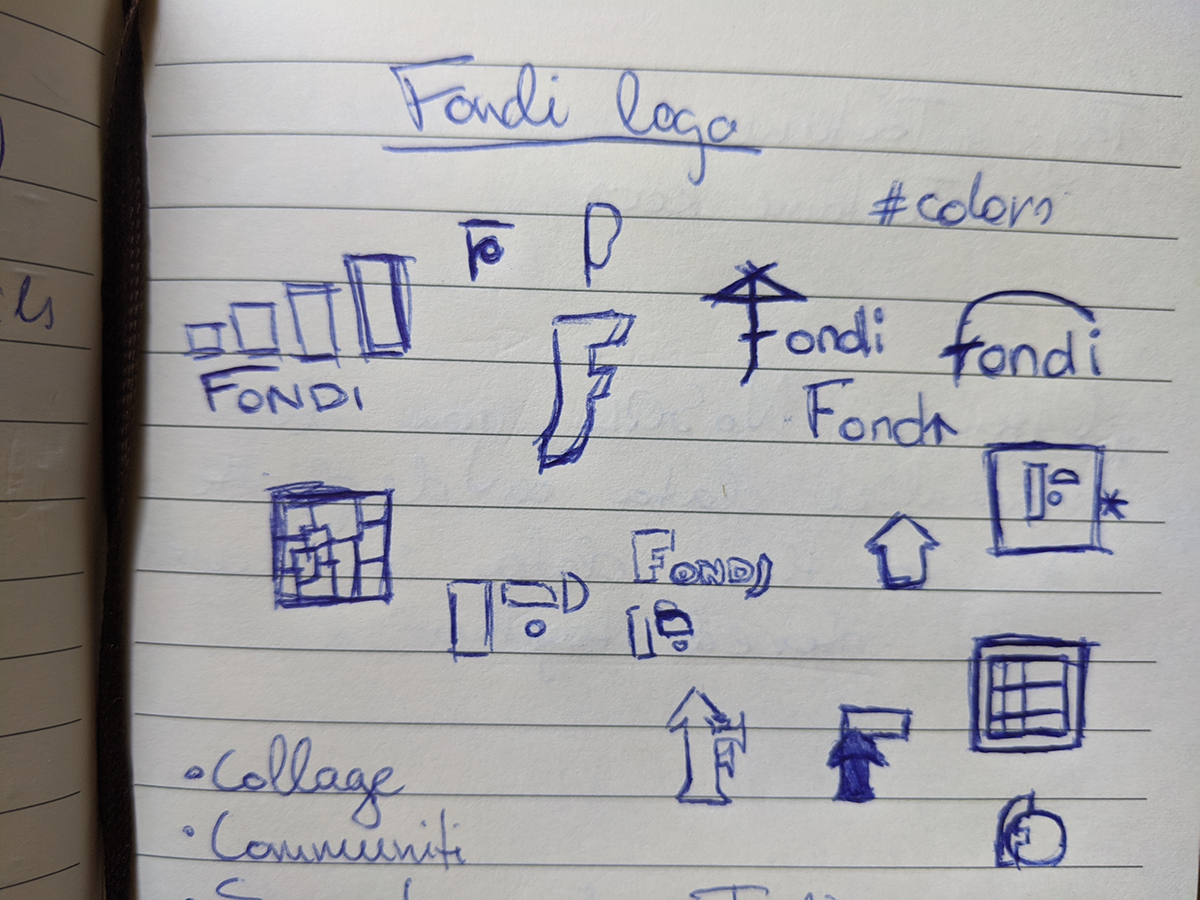 Fondi logo
#colors
F
P
FONDI
F
fondi
fondi
Fondi
FONDI
F
F
• Collage
• Communiti